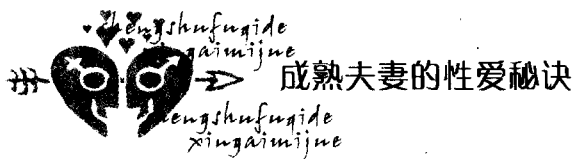 chengshufuqide
xingaimijue
成熟夫妻的性爱秘诀
chengshufuqide
xingaimijue